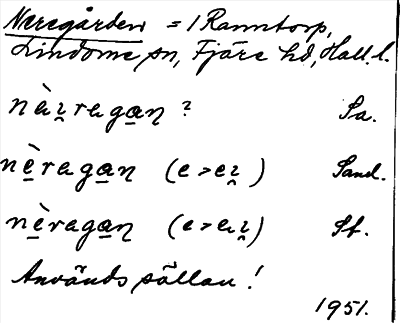 Neregården = 1 Ranntorp,
Lindome sn, Fjäre hd, Hall. l.
nàı̯ragan̥ ? Sa.
nè̱ragan̥ (e > eı̯) Sand.
nè̱ragan̥ (e > eı̯) Sf.
Användes sällan!
1951.